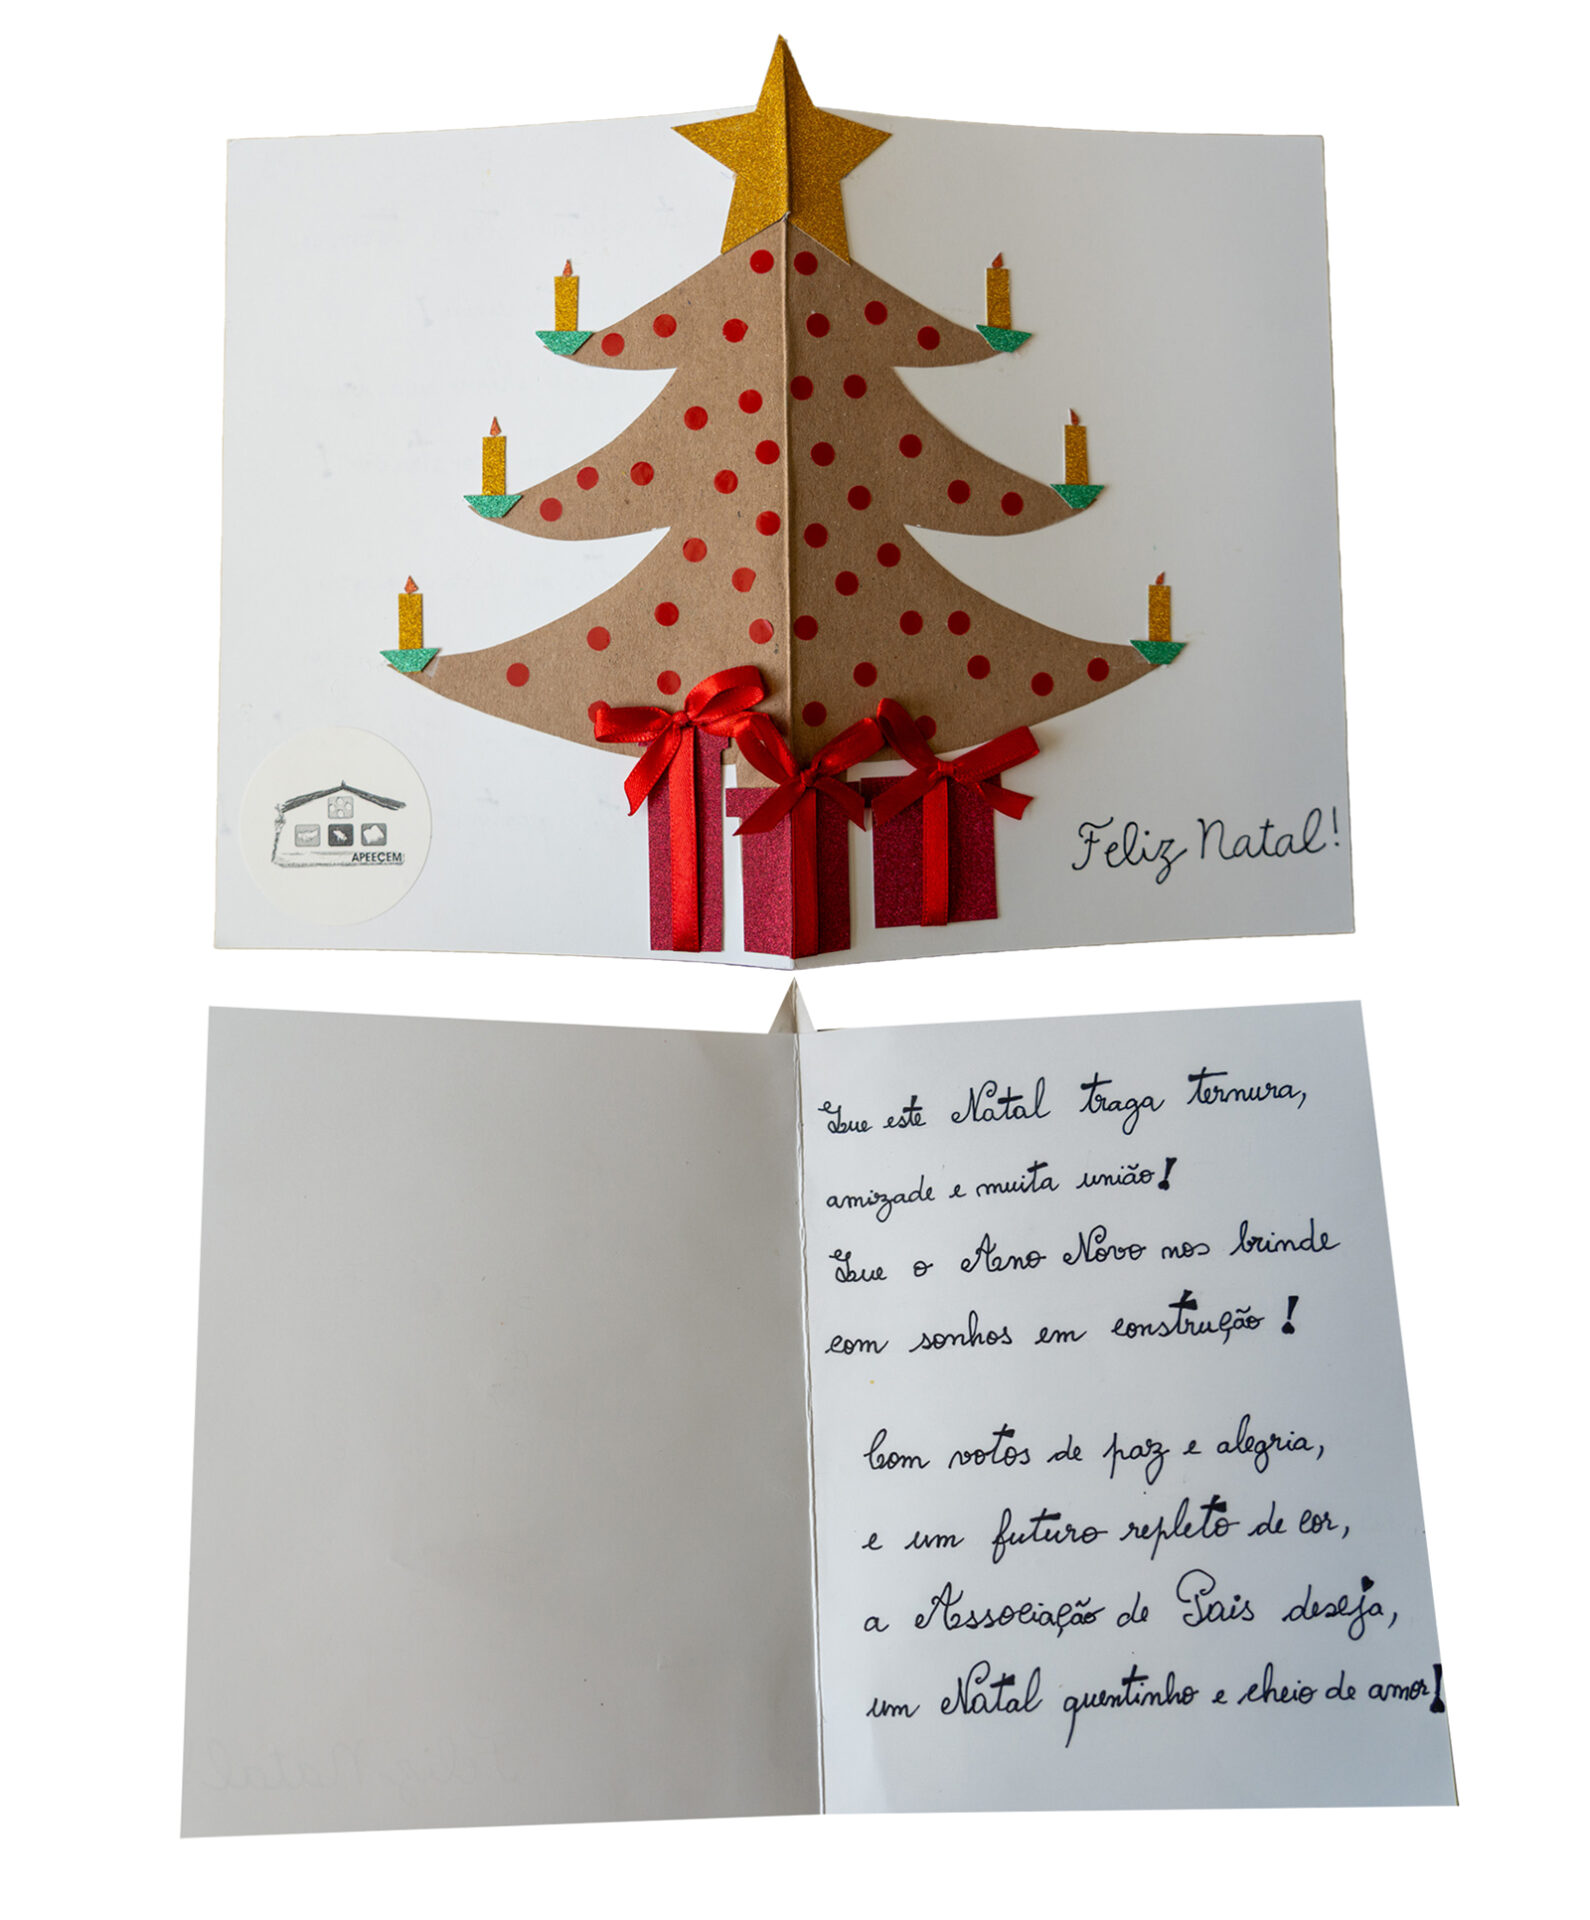 APEECEM
Feliz Natal!
Que este Natal traga ternura,
amizade e muita união!
Que o Ano Novo nos brinde
com sonhos em construção!
Com votos de paz e alegria,
e um futuro repleto de cor,
a Associação de Pais deseja,
um Natal quentinho e cheio de amor!